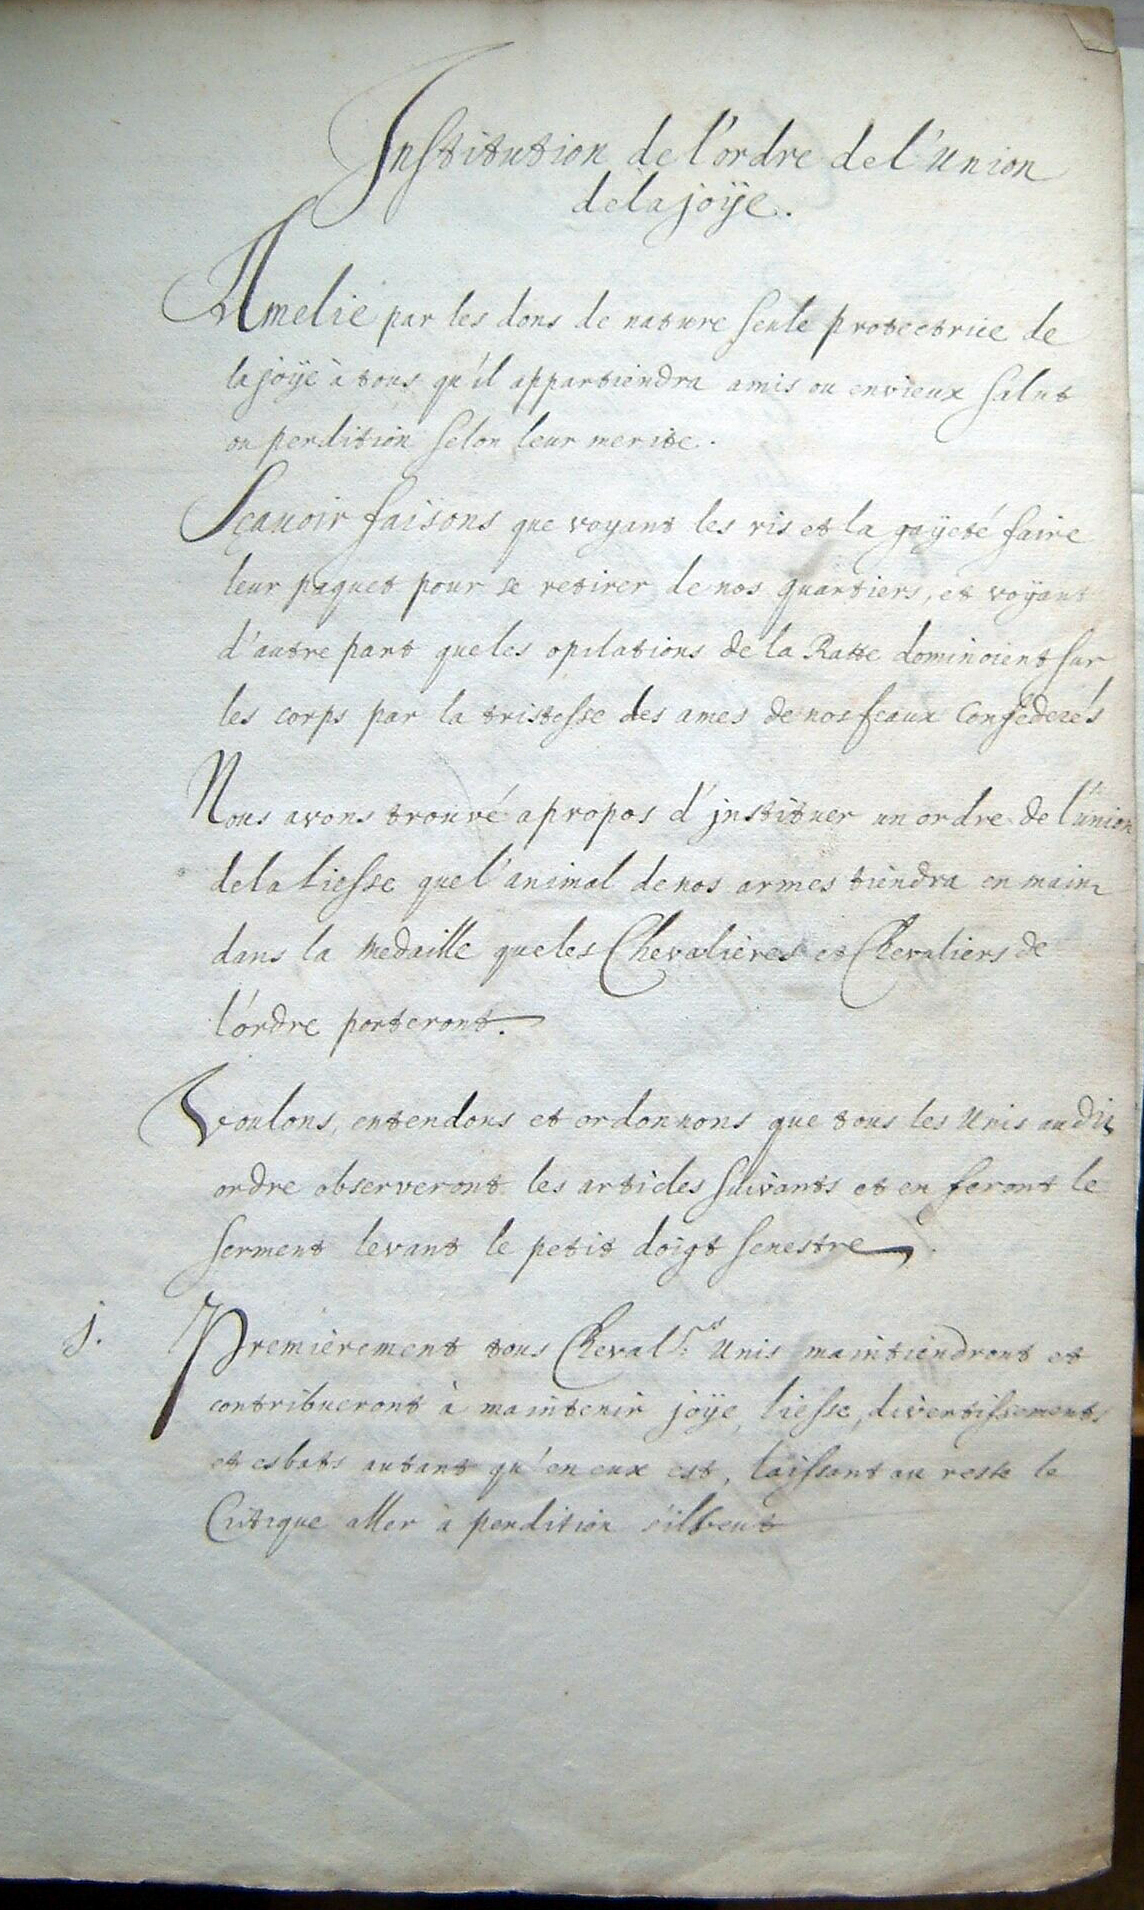 Institution de l'ordre de l'Union
de la joÿe.
Amelie par les dons de nature seule protectrice de
la joÿe à tous qu'il appartiendra amis ou envieux salut
ou perdition selon leur merite.
Sçauoir faisons que voyant les ris et la gaÿeté faire
leur paquet pour se retirer de nos quartiers, et voÿant
d'autre part que les opilations de la Ratte dominoient sur
les corps par la tristesse des ames de nos feaux Confederés
Nous avons trouvé a propos d'jnstituer un ordre de l'union
de la liesse que l'animal de nos armes tiendra en main
dans la medaille que les Chevalières et Chevaliers de
l'ordre porteront.
Voulons, entendons et ordonnons que tous les Unis au dit
ordre observeront les articles suivants et en feront le
serment levant le petit doigt senestre.
j. Premièrement tous Cheval.rs Unis maintiendront et
contribueront à maintenir joÿe, liesse, divertissements
et esbats autant qu'en eux est, laissant au reste le
Critique aller à perdition s'il veut